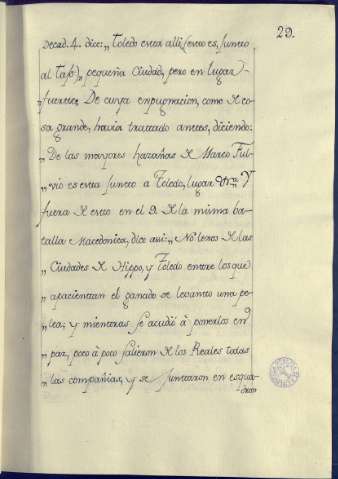 29.
Decad. 4. dice: „Toledo estaa alli (esto es, junto
al Taso), pequeña Ciudad, pero en lugar
„fuerte: De cuya expugnacion, como de co-
sa grande, havia trattado antes, diciendo:
„De las mayores hazañas de Marco Ful-
„vio es esta junto a Toledo, lugar &ra. Y
fuera de esto en el 9. de la misma ba-
talla Macedonica, dice assi: „No lexos de las
„Ciudades de Hippo, y Toledo entre los que
„apacientan el ganado se levanto una pe-
„lea; y mientras se acudió à ponerlos en
„paz, poco à poco salieron de los Reales todas
„las compañias, y se juntaron en esqua-
dron